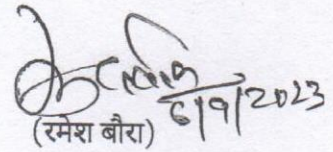 6/9/2023
(रमेश बौरा)